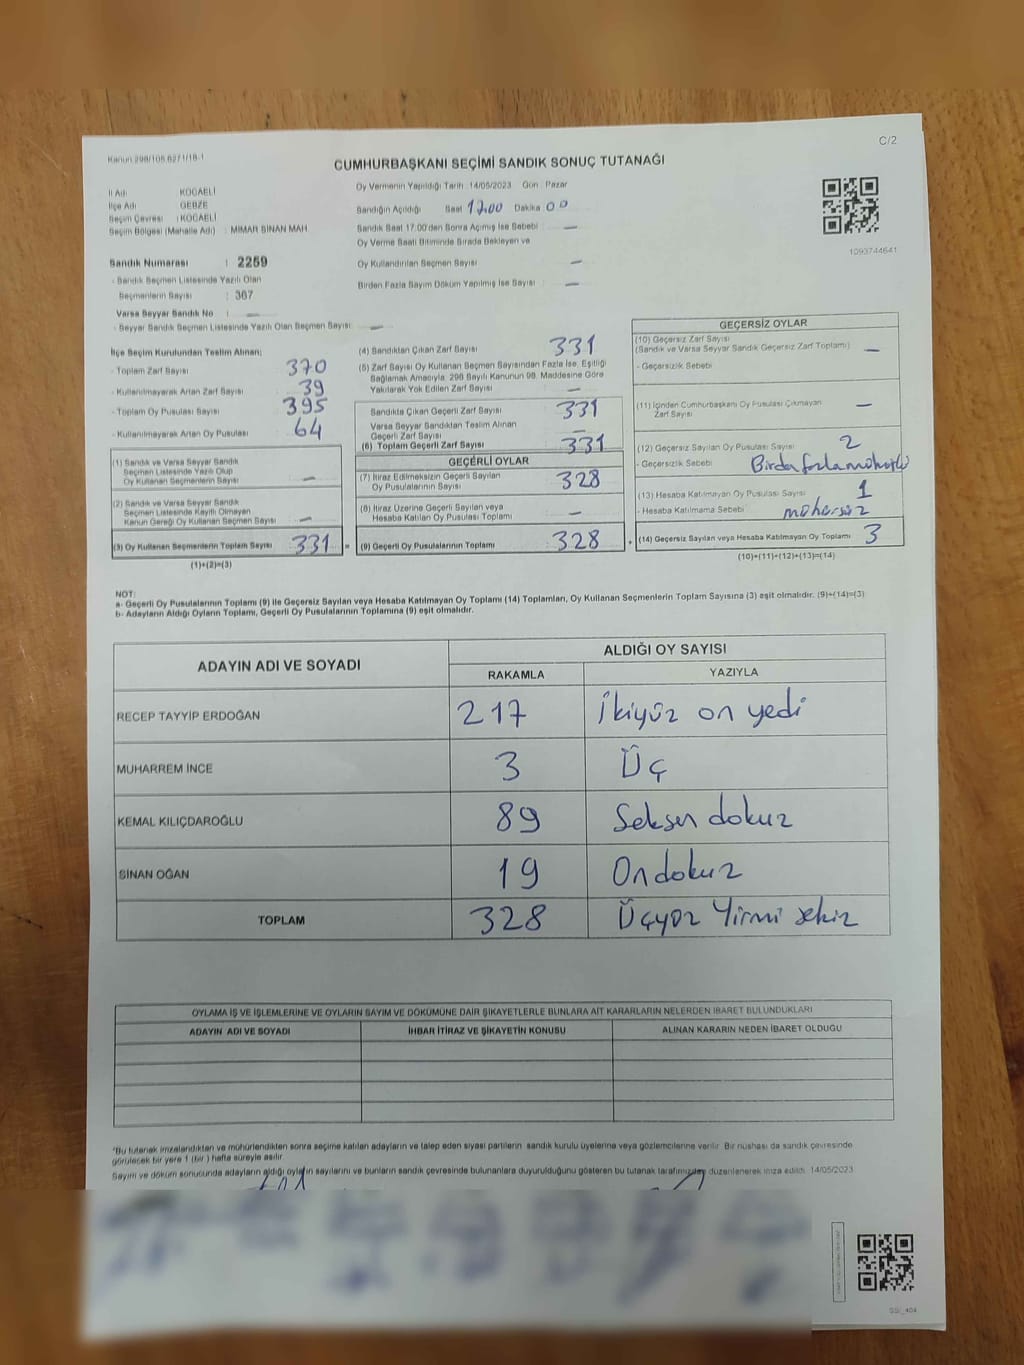 C/2
Kanun 298/105.6271/18-1
CUMHURBAŞKANI SEÇİMİ SANDIK SONUÇ TUTANAĞI
İl Adı : KOCAELİ
İlçe Adı : GEBZE
Seçim Çevresi : KOCAELİ
Seçim Bölgesi (Mahalle Adı) : MİMAR SİNAN MAH.
Sandık Numarası : 2259
- Sandık Seçmen Listesinde Yazılı Olan
Seçmenlerin Sayısı : 367
Varsa Seyyar Sandık No : —
- Seyyar Sandık Seçmen Listesinde Yazılı Olan Seçmen Sayısı : —
Oy Vermenin Yapıldığı Tarih : 14/05/2023 Gün : Pazar
Sandığın Açıldığı Saat 17.00 Dakika 00
Sandık Saat 17:00'den Sonra Açılmış İse Sebebi —
Oy Verme Saati Bitiminde Sırada Bekleyen ve
Oy Kullandırılan Seçmen Sayısı —
Birden Fazla Sayım Döküm Yapılmış İse Sayısı : —
1093744641
İlçe Seçim Kurulundan Teslim Alınan;
- Toplam Zarf Sayısı : 370
- Kullanılmayarak Artan Zarf Sayısı : 39
- Toplam Oy Pusulası Sayısı : 395
- Kullanılmayarak Artan Oy Pusulası : 64
(1) Sandık ve Varsa Seyyar Sandık
Seçmen Listesinde Yazılı Olup
Oy Kullanan Seçmenlerin Sayısı : —
(2) Sandık ve Varsa Seyyar Sandık
Seçmen Listesinde Kayıtlı Olmayan
Kanun Gereği Oy Kullanan Seçmen Sayısı : —
(3) Oy Kullanan Seçmenlerin Toplam Sayısı : 331 =
(1)+(2)=(3)
(4) Sandıktan Çıkan Zarf Sayısı : 331
(5) Zarf Sayısı Oy Kullanan Seçmen Sayısından Fazla İse, Eşitliği
Sağlamak Amacıyla, 298 Sayılı Kanunun 98. Maddesine Göre
Yakılarak Yok Edilen Zarf Sayısı : —
Sandıkta Çıkan Geçerli Zarf Sayısı : 331
Varsa Seyyar Sandıktan Teslim Alınan
Geçerli Zarf Sayısı : —
(6) Toplam Geçerli Zarf Sayısı : 331
GEÇERLİ OYLAR
(7) İtiraz Edilmeksizin Geçerli Sayılan
Oy Pusulalarının Sayısı : 328
(8) İtiraz Üzerine Geçerli Sayılan veya
Hesaba Katılan Oy Pusulası Toplamı : —
(9) Geçerli Oy Pusulalarının Toplamı : 328 +
GEÇERSİZ OYLAR
(10) Geçersiz Zarf Sayısı :
(Sandık ve Varsa Seyyar Sandık Geçersiz Zarf Toplamı) —
- Geçersizlik Sebebi :
(11) İçinden Cumhurbaşkanı Oy Pusulası Çıkmayan
Zarf Sayısı : —
(12) Geçersiz Sayılan Oy Pusulası Sayısı : 2
- Geçersizlik Sebebi :
(13) Hesaba Katılmayan Oy Pusulası Sayısı : 1
- Hesaba Katılmama Sebebi : mühürsüz
(14) Geçersiz Sayılan veya Hesaba Katılmayan Oy Toplamı : 3
(10)+(11)+(12)+(13)=(14)
NOT:
a- Geçerli Oy Pusulalarının Toplamı (9) ile Geçersiz Sayılan veya Hesaba Katılmayan Oy Toplamı (14) Toplamları, Oy Kullanan Seçmenlerin Toplam Sayısına (3) eşit olmalıdır. (9)+(14)=(3)
b- Adayların Aldığı Oyların Toplamı, Geçerli Oy Pusulalarının Toplamına (9) eşit olmalıdır.
ADAYIN ADI VE SOYADI ALDIĞI OY SAYISI
RAKAMLA YAZIYLA
RECEP TAYYİP ERDOĞAN 217 İkiyüz on yedi
MUHARREM İNCE 3 Üç
KEMAL KILIÇDAROĞLU 89 Seksen dokuz
SİNAN OĞAN 19 On dokuz
TOPLAM 328 Üçyüz Yirmi sekiz
OYLAMA İŞ VE İŞLEMLERİNE VE OYLARIN SAYIM VE DÖKÜMÜNE DAİR ŞİKAYETLERLE BUNLARA AİT KARARLARIN NELERDEN İBARET BULUNDUKLARI
ADAYIN ADI VE SOYADI İHBAR İTİRAZ VE ŞİKAYETİN KONUSU ALINAN KARARIN NEDEN İBARET OLDUĞU
*Bu tutanak imzalandıktan ve mühürlendikten sonra seçime katılan adayların ve talep eden siyasi partilerin sandık kurulu üyelerine veya gözlemcilerine verilir. Bir nüshası da sandık çevresinde
görülecek bir yere 1 (bir) hafta süreyle asılır.
Sayım ve döküm sonucunda adayların aldığı oyların sayılarını ve bunların sandık çevresinde bulunanlara duyurulduğunu gösteren bu tutanak tarafımızdan düzenlenerek imza edildi. 14/05/2023
SSi_404